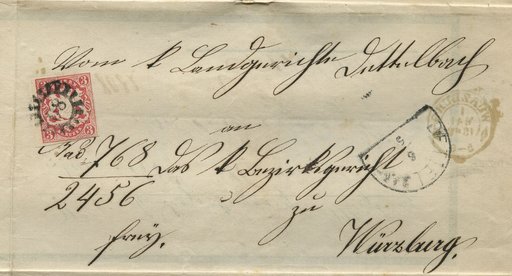 Vom k Landgerichte Dettelbach
3 3
an
Nad 768 Das k Bezirksgericht
2456
zu
frey. Würzburg.